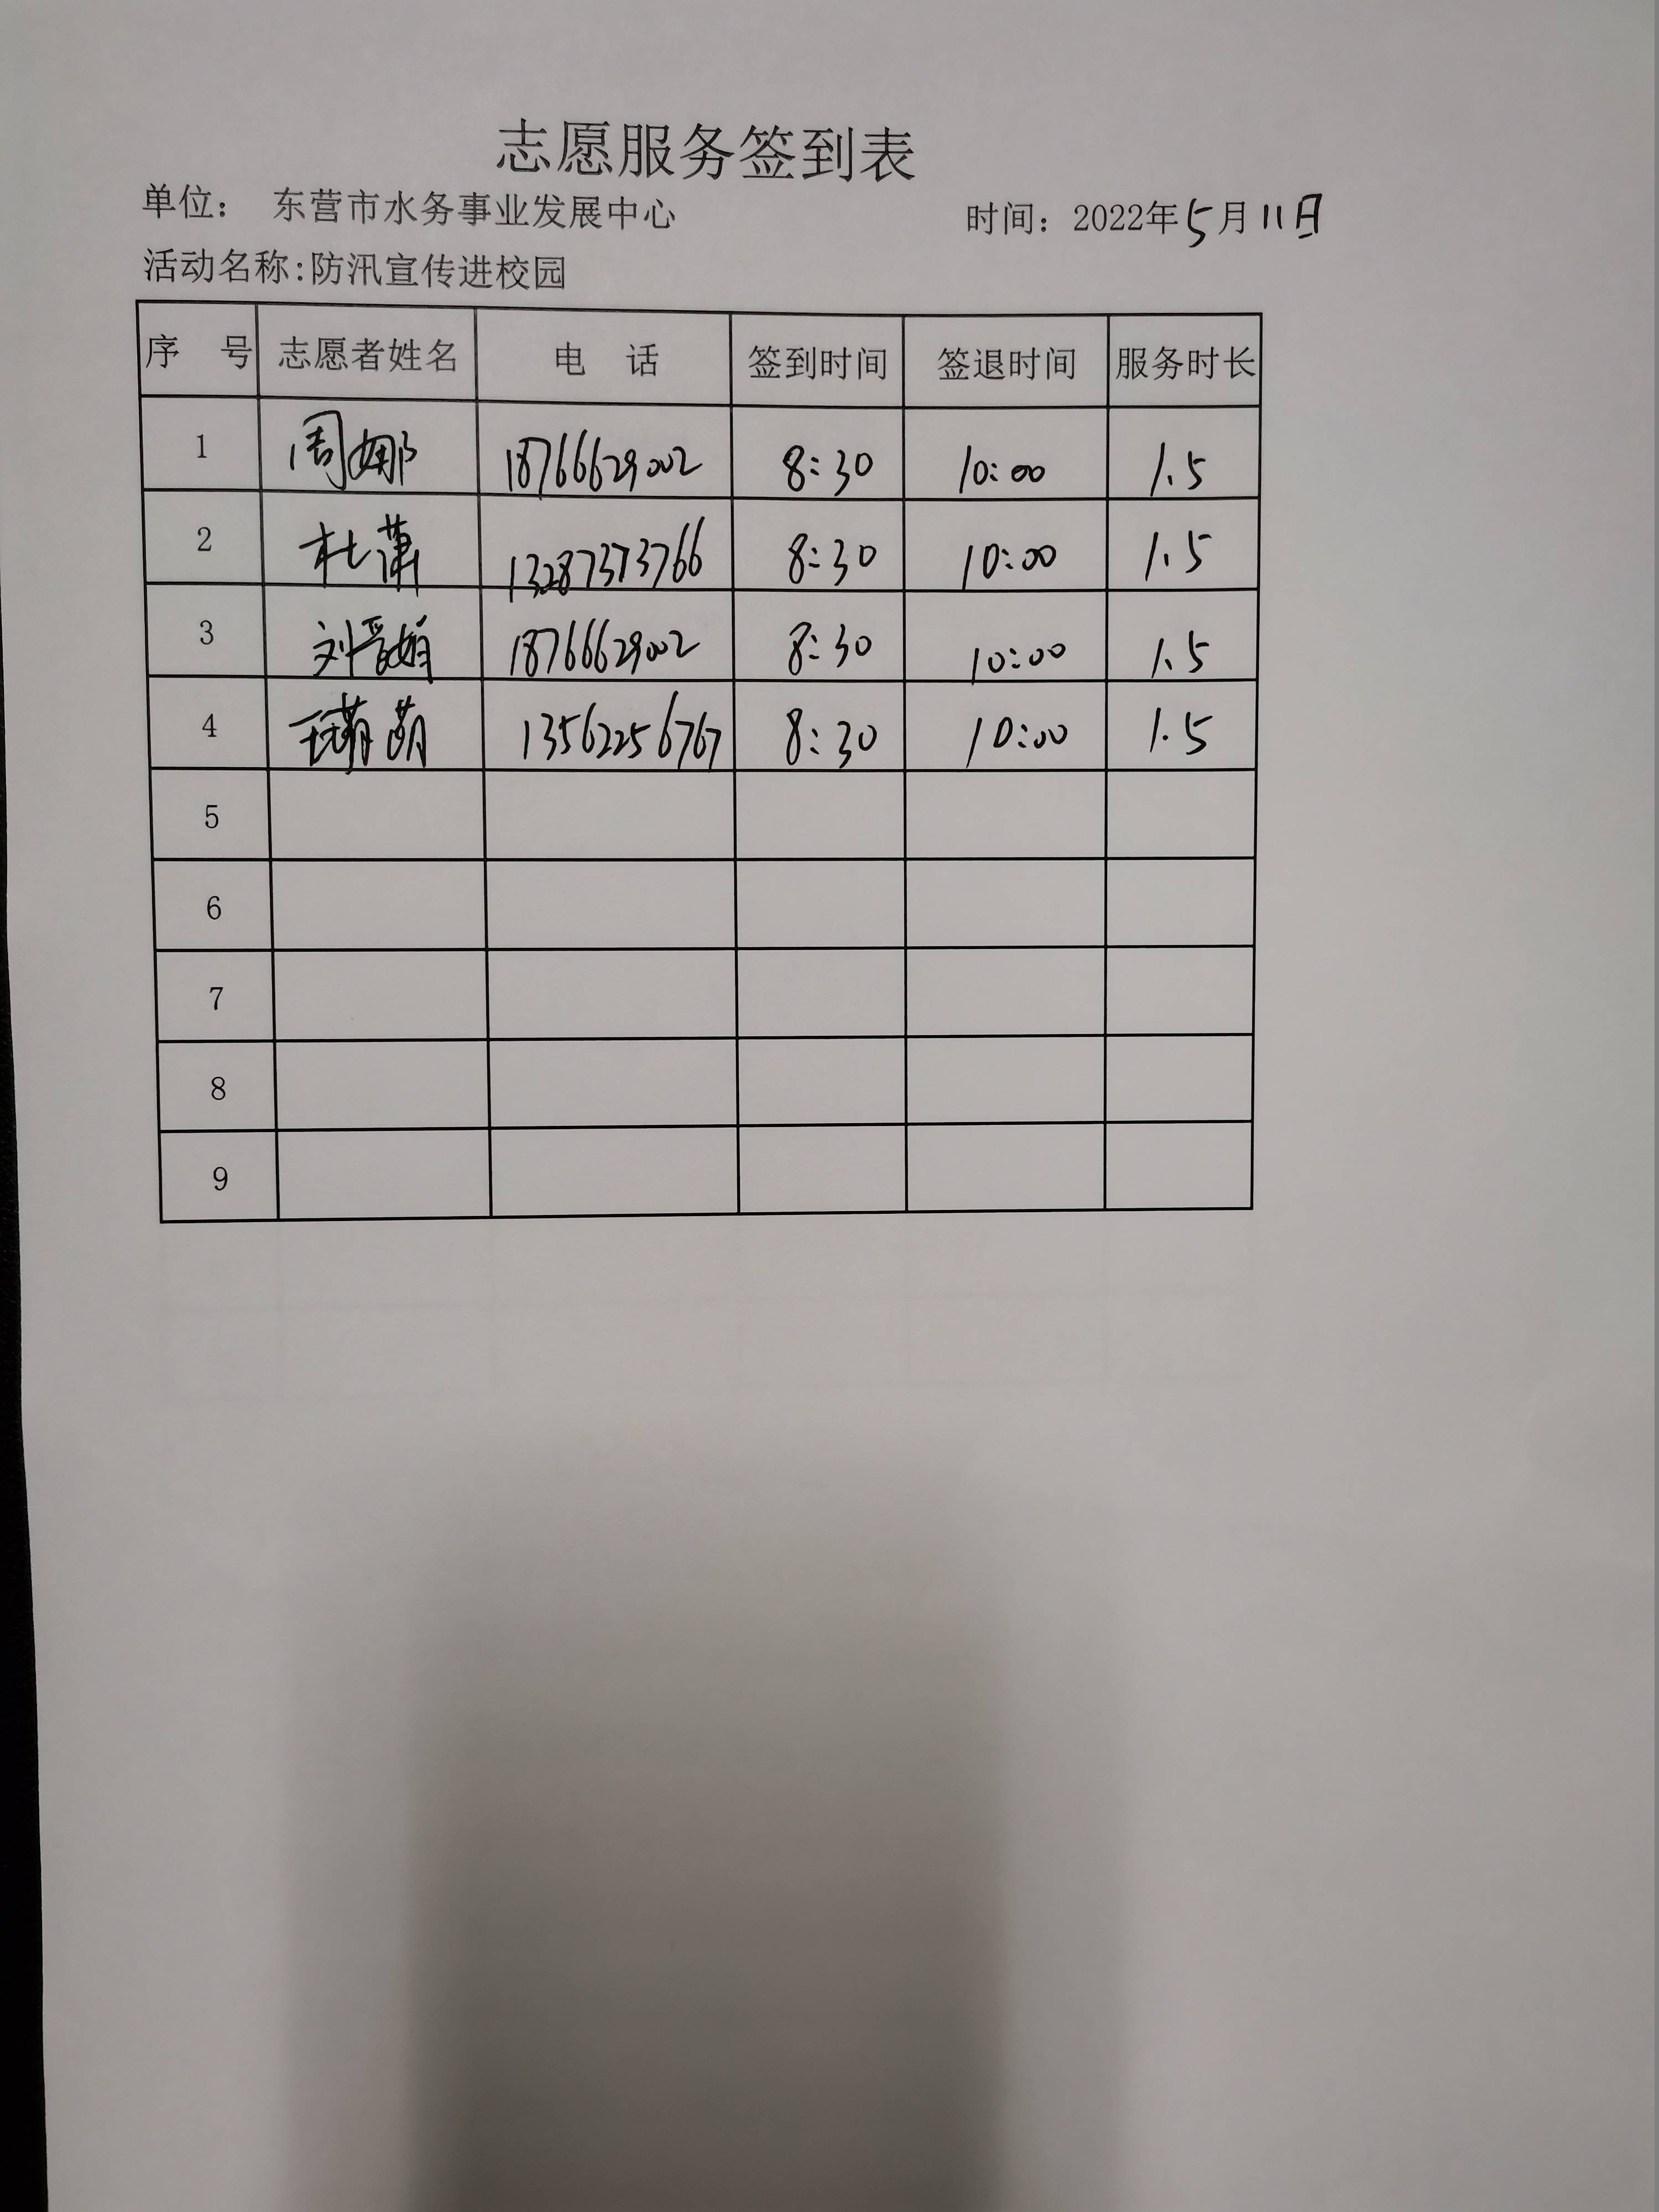 志愿服务签到表
单位： 东营市水务事业发展中心 时间：2022年5月11日
活动名称:防汛宣传进校园
序 号 志愿者姓名 电 话 签到时间 签退时间 服务时长
1 周娜 18766629002 8:30 10:00 1.5
2 杜萧 13287373766 8:30 10:00 1.5
3 刘晋娟 18766629002 8:30 10:00 1.5
4 萌萌 13562256767 8:30 10:00 1.5
5
6
7
8
9